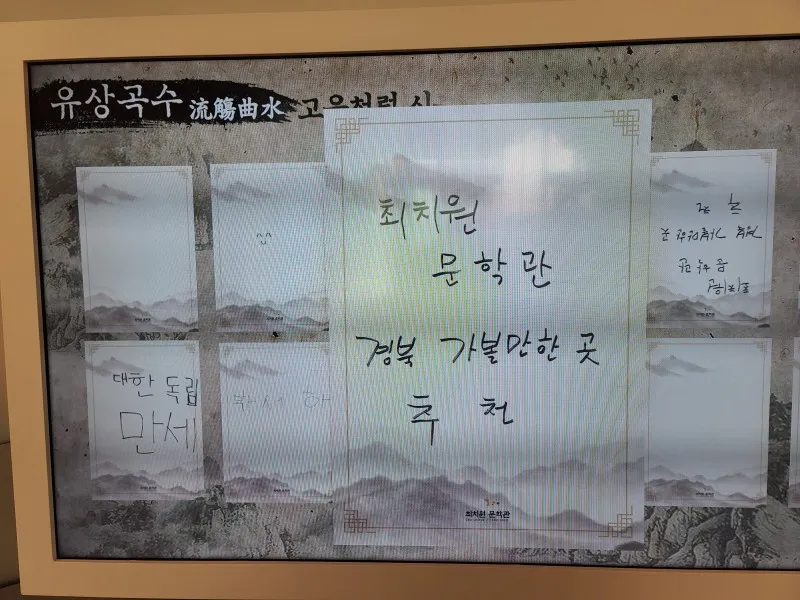 유상곡수 流觴曲水 고운처럼 시
^^
최치원
문학관
경북 가볼만한 곳
추천
최치원 문학관
대한 독립
만세